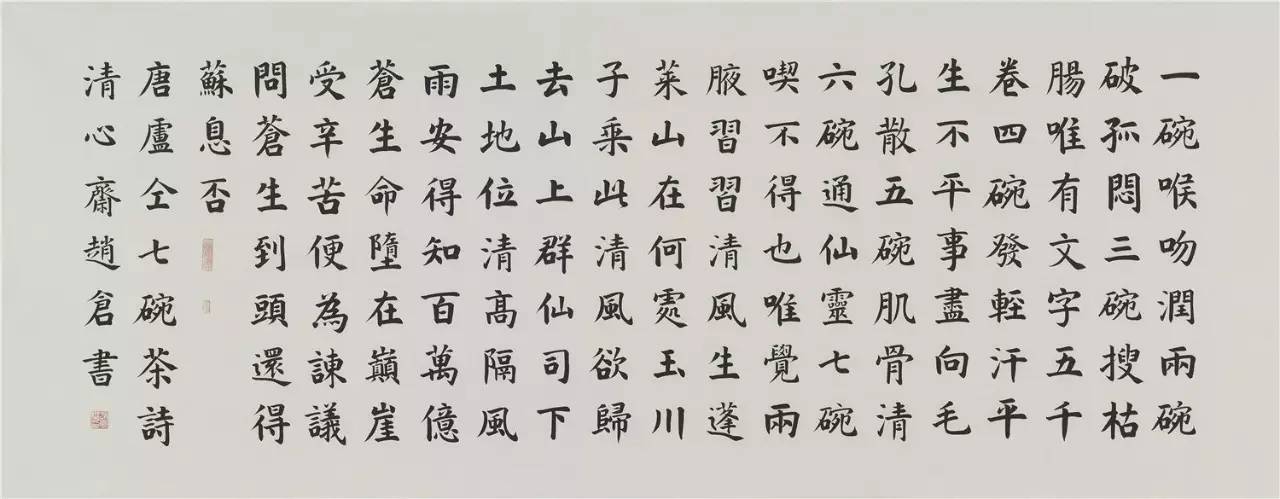 一碗喉吻潤兩碗
破孤悶三碗搜枯
腸唯有文字五千
卷四碗發輕汗平
生不平事盡向毛
孔散五碗肌骨清
六碗通仙靈七碗
喫不得也唯覺兩
腋習習清風生蓬
萊山在何處玉川
子乘此清風欲歸
去山上群仙司下
土地位清高隔風
雨安得知百萬億
蒼生命墮在巔崖
受辛苦便為諫議
問蒼生到頭還得
蘇息否
唐盧仝七碗茶詩
清心齋趙倉書